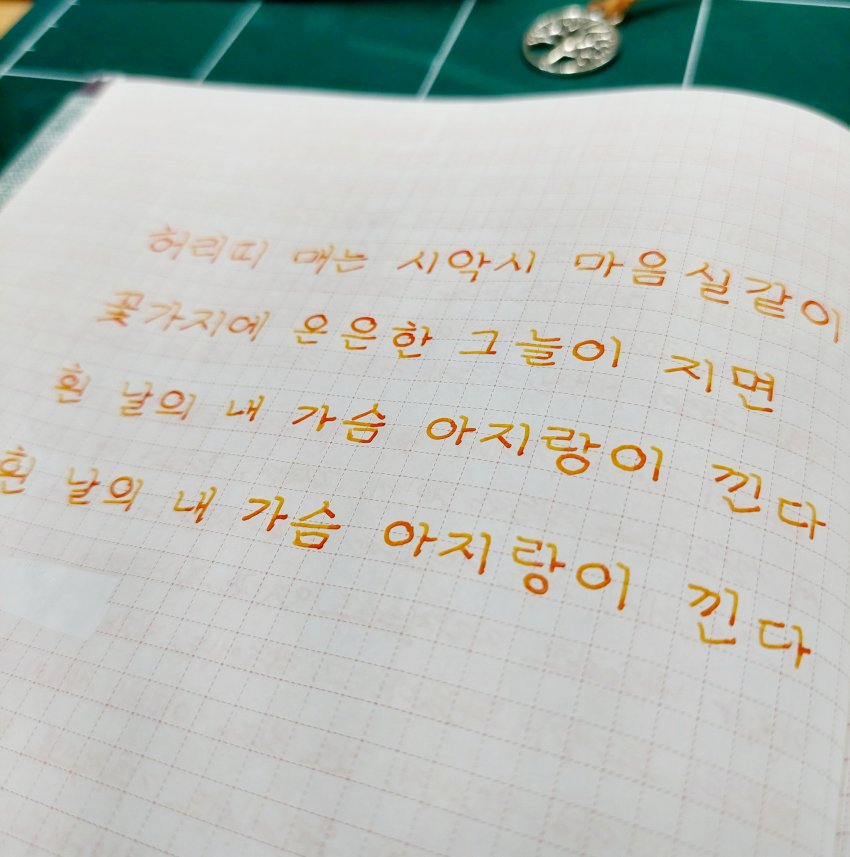 허리띠 매는 시악시 마음실같이
꽃가지에 은은한 그늘이 지면
흰 날의 내 가슴 아지랑이 낀다
흰 날의 내 가슴 아지랑이 낀다